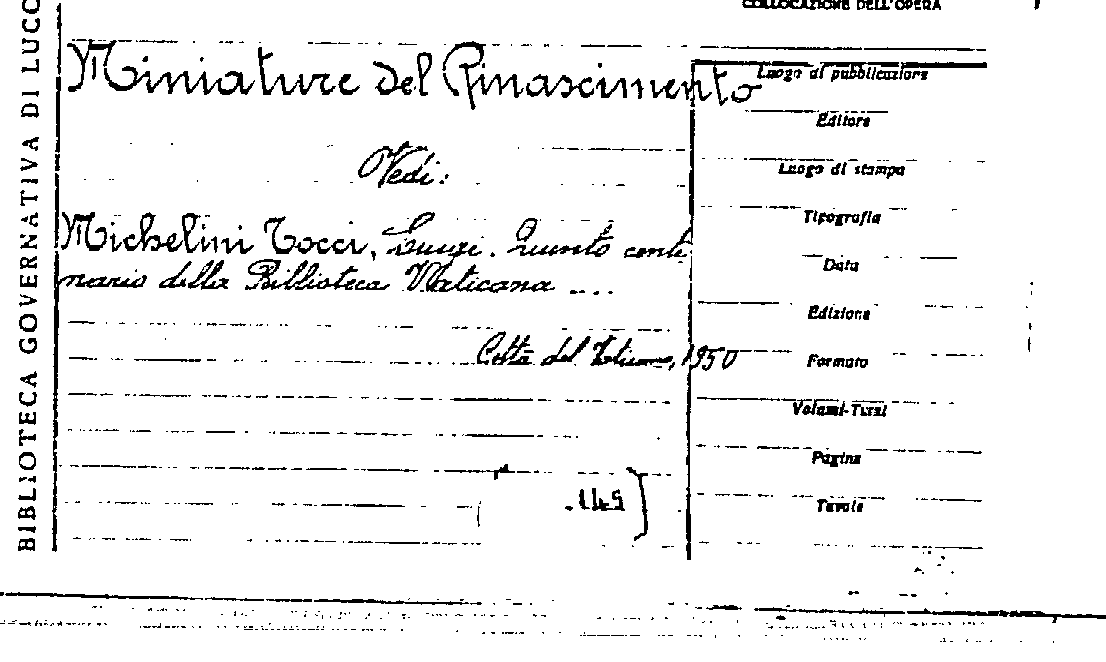 COLLOCAZIONE DELL'OPERA
BIBLIOTECA GOVERNATIVA DI LUCC
Miniature del Rinascimento
Vedi:
Michelini Tocci, Luigi. Quinto cente
nario della Biblioteca Vaticana ....
Città del Vaticano, 1950
.145]
Luogo di pubblicazione
Editore
Luogo di stampa
Tipografia
Data
Edizione
Formato
Volumi-Tomi
Pagine
Tavole